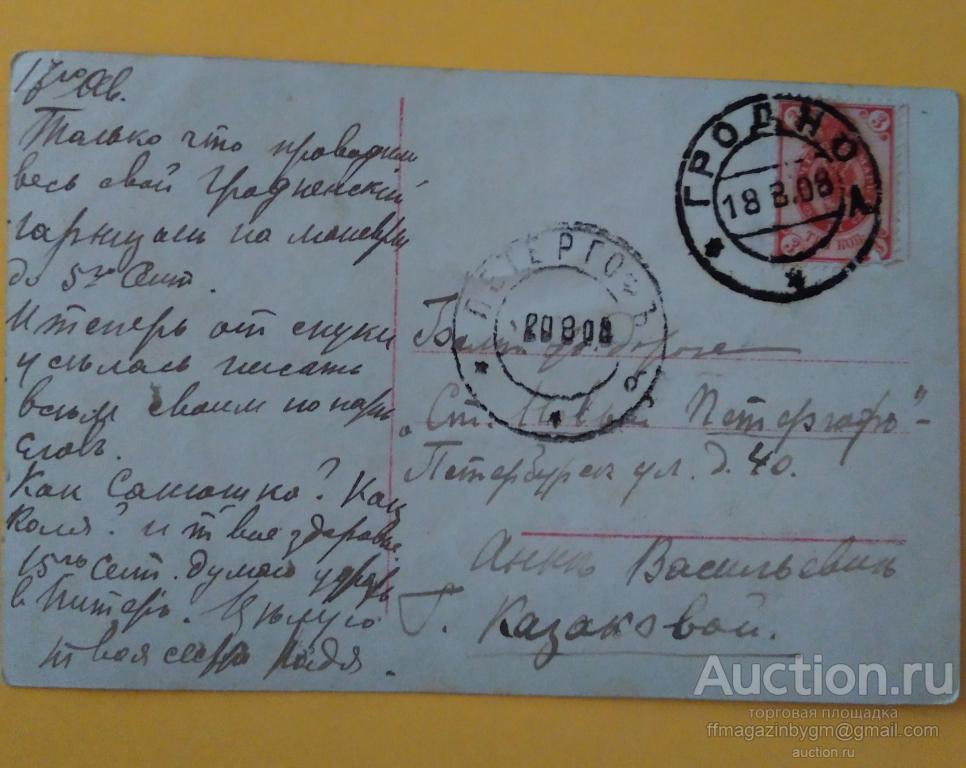 17го Ав.
Только что проводили
весь свой Гродненский
гарнизон на маневры
до 5го Сент.
И теперь от скуки
усълась писать
всъм своим
Как Санюшка? Как
Коля? и твое здоровье
15го Сент. думаю удрать
в Питеръ. Цълую
твоя сестра Надя.
ГРОДНО
18 8.08
3 3
ПЕТЕРГОФЪ
20 8 08
Балт. ж. дороге
„Ст. Новый Петергофъ"-
Петербургск ул. д. 40.
Аннъ Васильевнъ
Г. Казаковой.
Auction.ru
торговая площадка
ffmagazinbygm@gmail.com
auction.ru